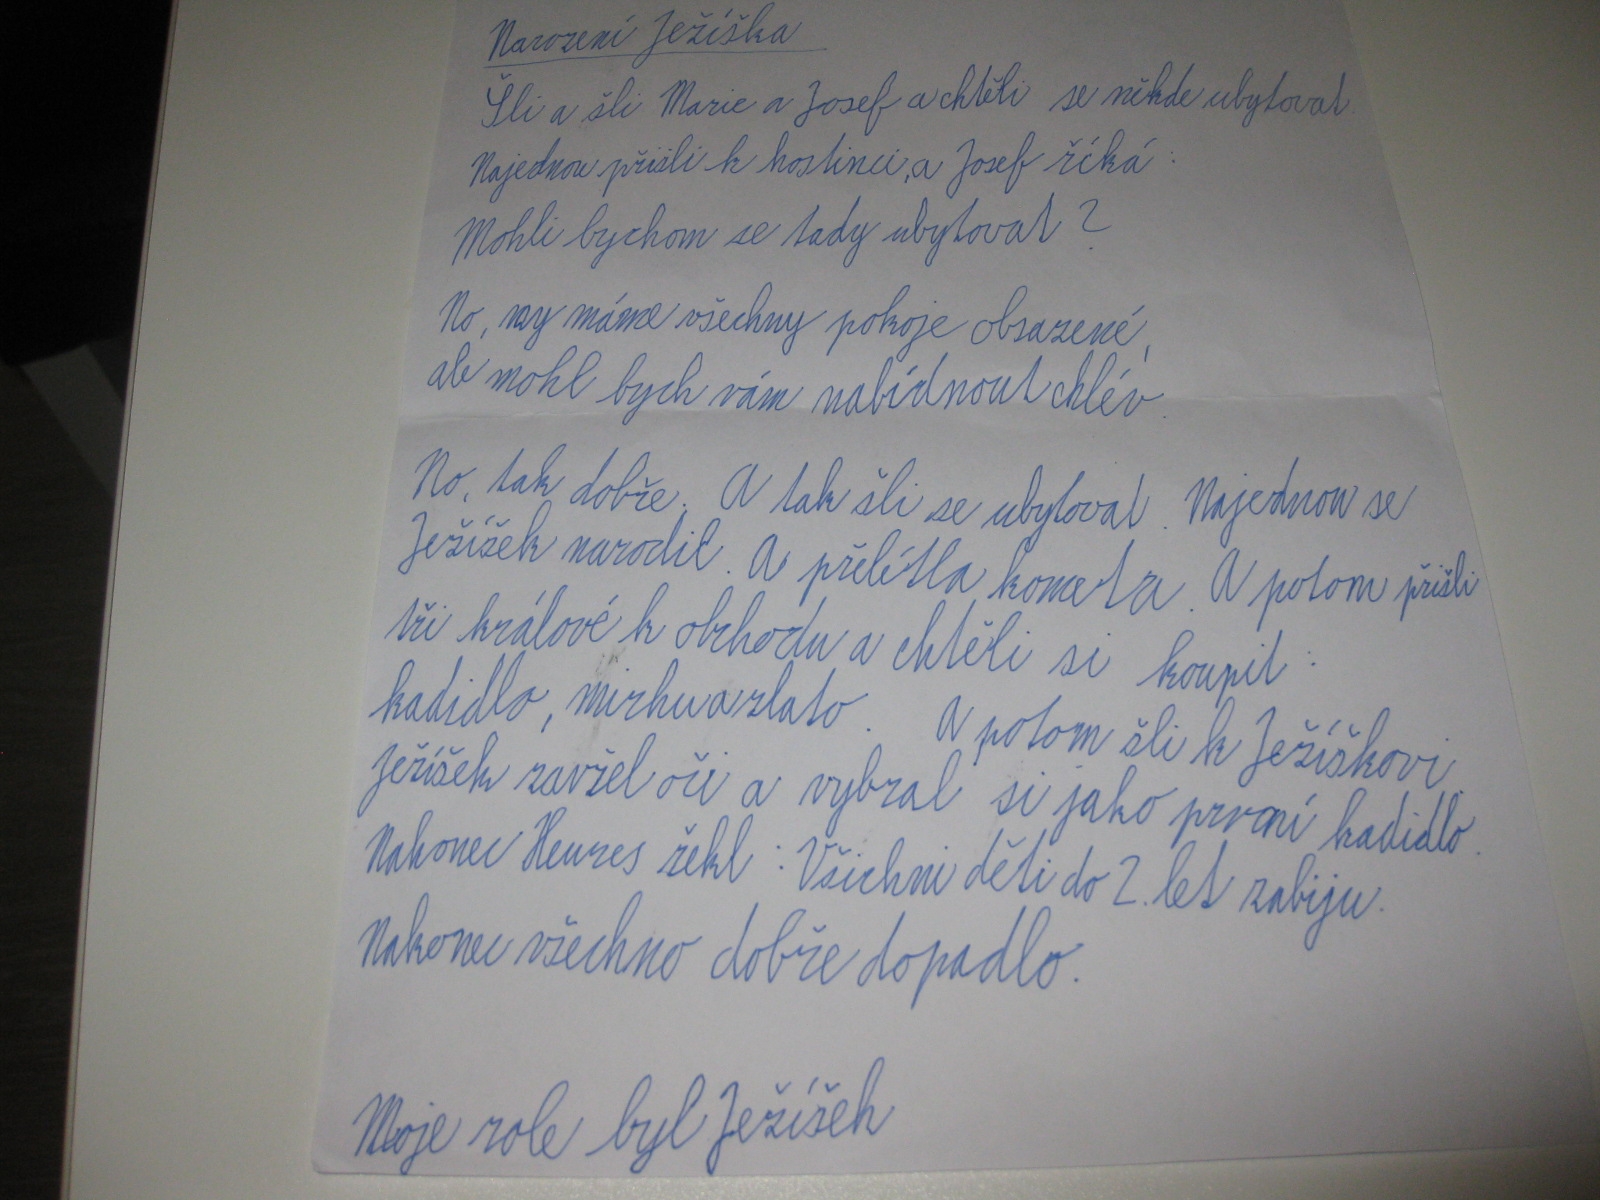 Narození Ježíška
Šli a šli Marie a Josef a chtěli se někde ubytovat.
Najednou přišli k hostinci, a Josef říká:
Mohli bychom se tady ubytovat?
No, my máme všechny pokoje obsazené,
ale mohl bych vám nabídnout chlév.
No, tak dobře. A tak šli se ubytovat. Najednou se
Ježíšek narodil. A přelétla kometa. A potom přišli
tři králové k obchodu a chtěli si koupit:
kadidlo, mirhu a zlato. A potom šli k Ježíškovi.
Ježíšek zavřel oči a vybral si jako první kadidlo.
Nakonec řekl: Všichni děti do 2. let zabiju.
Nakonec všechno dobře dopadlo.
Moje role byl Ježíšek